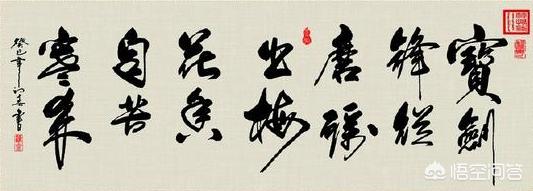 寶劍
鋒從
磨礪
出梅
花香
自苦
寒來
癸巳年書
悟空问答